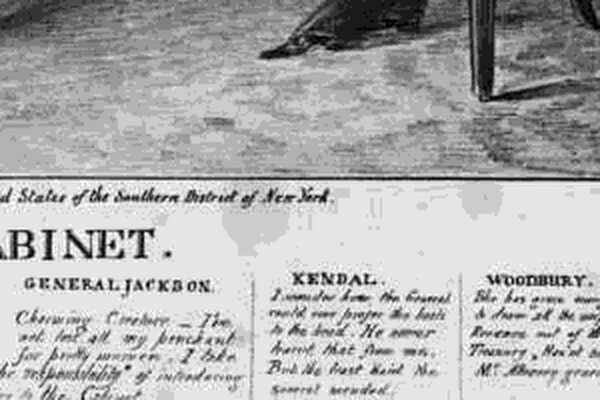 d States of the Southern District of New York.
ABINET.
GENERAL JACKSON.
Charming Creature _ I've
not lost all my penchant
for pretty women. I take
the "responsibility" of introducing
to the Cabinet
KENDAL.
I wonder how the General
could ever prefer the
to the head. He never
learnt that from me.
But the least said the
soonest mended.
WOODBURY.
She has even
to draw all the
Revenue out of
Treasury.
Mr.